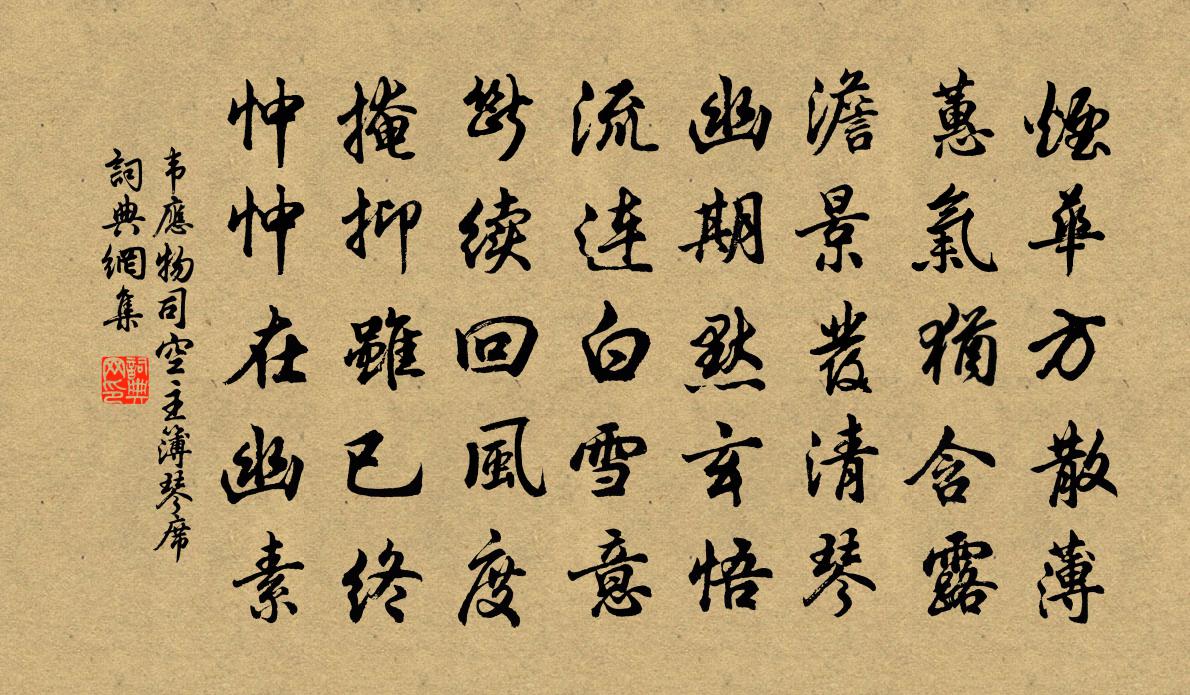 煙華方散薄
蕙氣猶含露
澹景發清琴
幽期默玄悟
流連白雪意
斷續回風度
掩抑雖已終
忡忡在幽素
韦應物司空主簿琴席
詞典網集
詞典网印